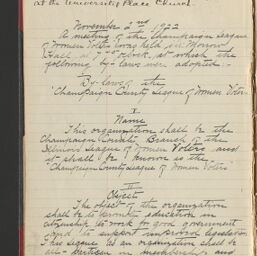 at the University Place Church.
November 2nd 1922
A meeting of the Champaign League
of Women Voters was held in Morrow
Hall at o'clock, at which the
following by-laws were adopted -
By-laws of the
"Champaign County League of Women Voters
I
Name
This organization shall be the
Champaign County Branch of the
Illinois League of Women Voters and
it shall be known as the
"Champaign County League of Women Voters"
II
Object
The object of the organization
shall be to promote education in
citizenship, to work for good government
and to support improved legislation
This league as an organization shall be
all-partisan in membership and